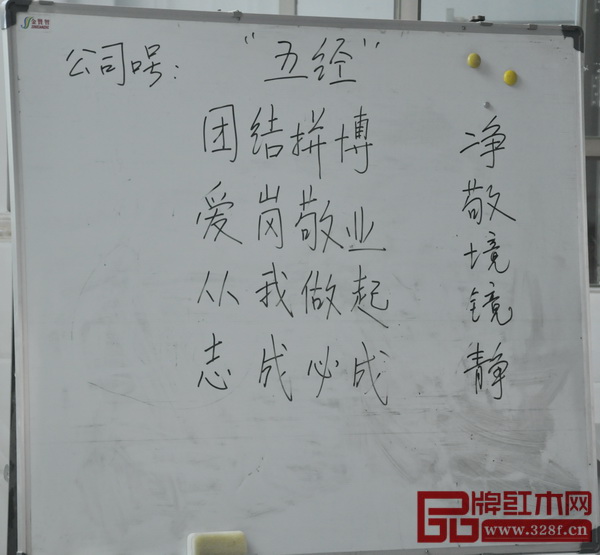 公司号： “五经”
团结拼博
爱岗敬业
从我做起
志成必成
净
敬
境
镜
静
品牌红木网
www.328f.cn